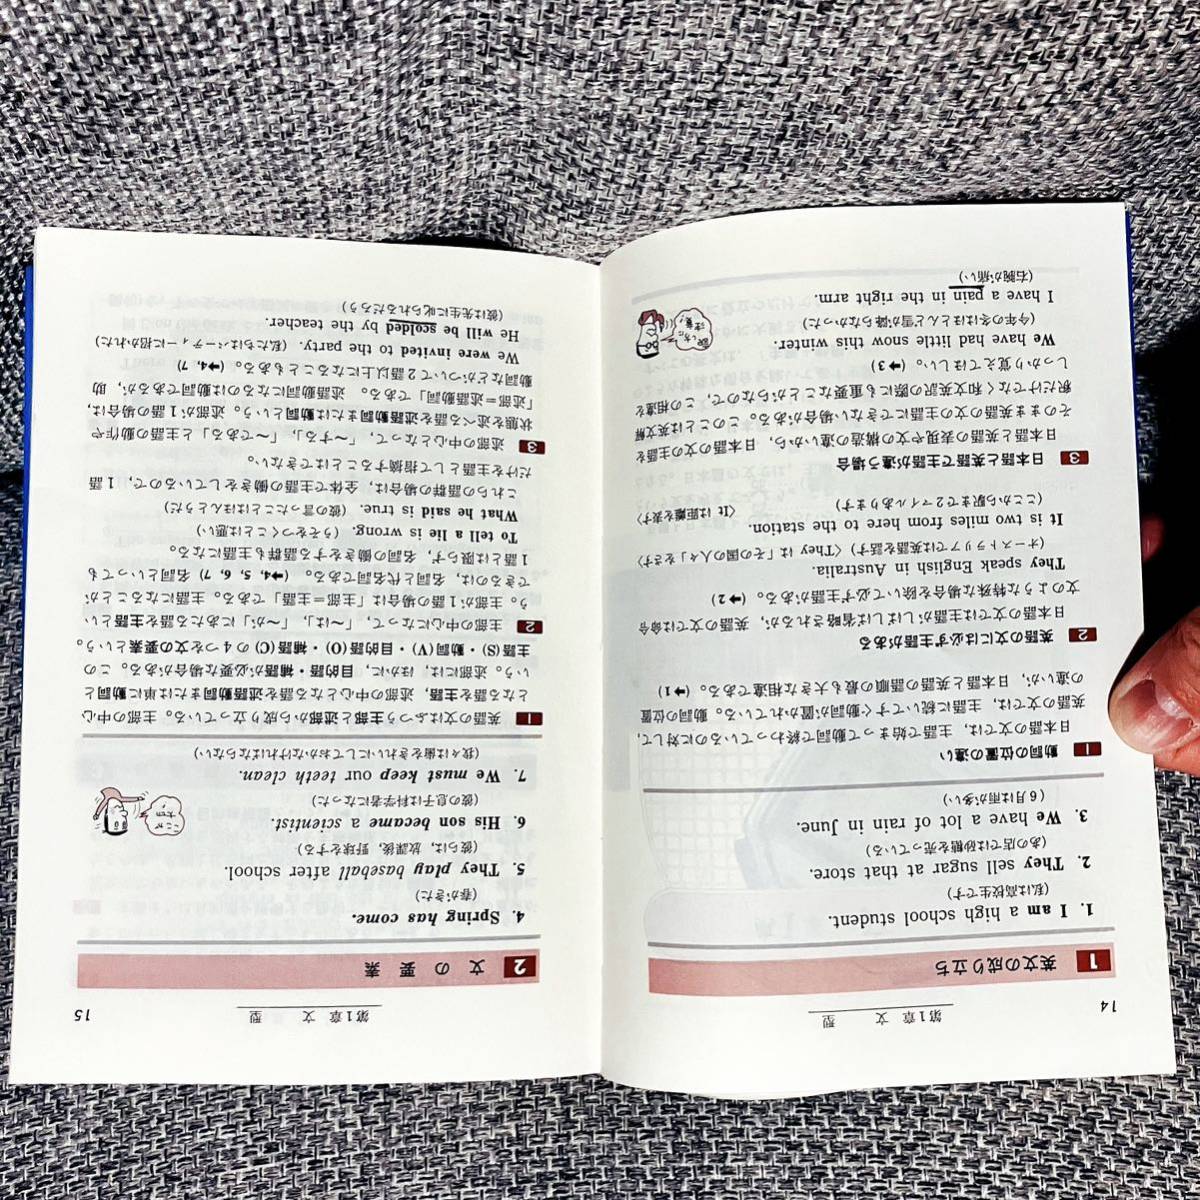 14
第1章 文 型
1 英文の成り立ち
1. I am a high school student.
(私は高校生です)
2. They sell sugar at that store.
(あの店では砂糖を売っている)
3. We have a lot of rain in June.
(6月は雨が多い)
1 動詞の位置の違い
日本語の文では，主語で始まって動詞で終わっているのに対して，
英語の文では，主語に続いてすぐ動詞が置かれている。動詞の位置
の違いが，日本語と英語の語順の最も大きた相違である。(➡1)
2 英語の文には必ず主語がある
日本語の文では主語がしばしば省略されるが，英語の文では命令
文のような特殊な場合を除いて必ず主語がある。(➡2)
They speak English in Australia.
(オーストラリアでは英語を話す)〈They は「その国の人々」をさす〉
It is two miles from here to the station.
(ここから駅まで2マイルあります) 〈It は距離を表す〉
3 日本語と英語で主語が違う場合
日本語と英語の表現や文の構造の違いから，日本語の文の主語を
そのまま英語の文の主語にできない場合がある。このことは英文解
釈だけでなく和文英訳の際にも重要なことがらなので，この相違を
しっかり覚えてほしい。(➡3)
We have had little snow this winter.
(今年の冬はほとんど雪が降らなかった)
I have a pain in the right arm.
(右腕が痛い)
第1章 文 型
15
2 文の要素
4. Spring has come.
(春がきた)
5. They play baseball after school.
(彼らは，放課後，野球をする)
6. His son became a scientist.
(彼の息子は科学者になった)
7. We must keep our teeth clean.
(我々は歯をきれいにしておかなければならない)
1 英語の文はふつう主部と述部から成り立っている。主部の中心
となる語を主語，述部の中心となる語を述語動詞または単に動詞と
いう。述部には，ほかに，目的語・補語が必要な場合がある。この
主語(S)・動詞(V)・目的語(O)・補語(C)の4つを文の要素という。
2 主部の中心になって，「〜は」，「〜が」にあたる語を主語とい
う。主部が1語の場合は「主部＝主語」である。主語になることが
できるのは，名詞と代名詞である。(➡4, 5, 6, 7) 名詞といっても
1語とは限らず，名詞の働きをする語群も主語になる。
To tell a lie is wrong. (うそをつくことは悪い)
What he said is true. (彼の言ったことはほんとうだ)
これらの語群の場合は，全体で主語の働きをしているので，1語
だけを主語として指摘することはできない。
3 述部の中心となって，「〜する」，「〜である」と主語の動作や
状態を述べる語を述語動詞または動詞という。述部が1語の場合は，
「述部＝述語動詞」である。述語動詞になるのは動詞であるが，助
動詞などがついて2語以上になることもある。(➡4, 7)
We were invited to the party. (私たちはパーティーに招かれた)
He will be scolded by the teacher.
(彼は先生に叱られるだろう)